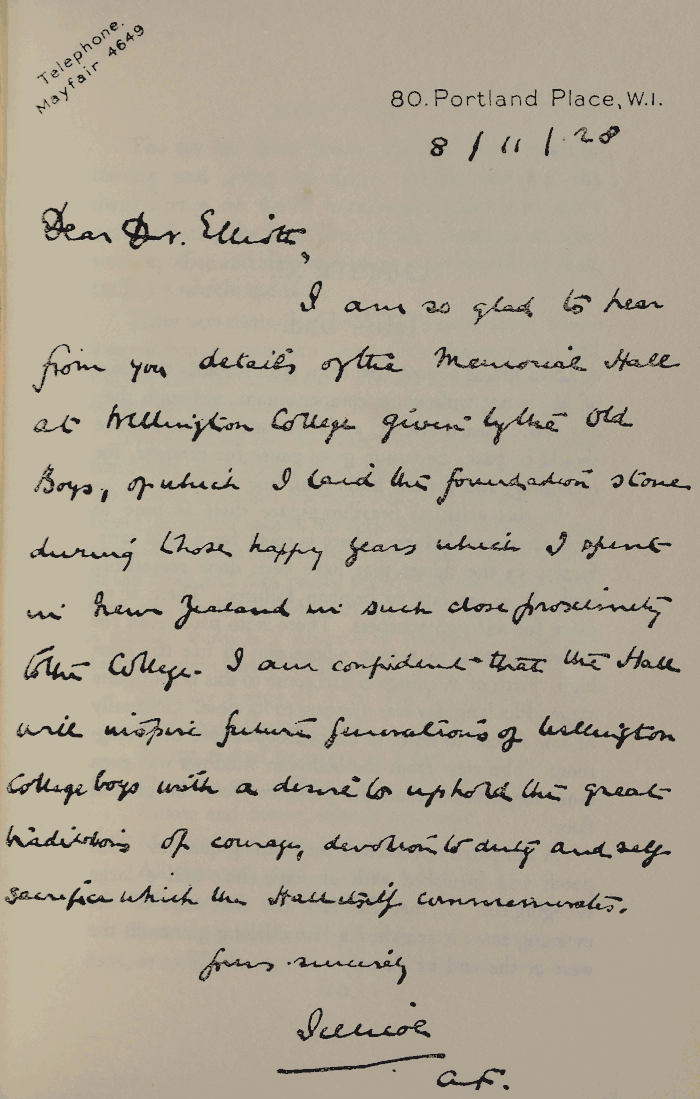 Telephone.
Mayfair 4649
80. Portland Place, W.1.
8 / 11 / 28
Dear Dr. Elliott,
I am so glad to hear
from you details of the Memorial Hall
at Wellington College given by the Old
Boys, of which I laid the foundation stone
during those happy years which I spent
in New Zealand in such close proximity
to the College. I am confident that the Hall
will inspire future generations of Wellington
College boys with a desire to uphold the great
traditions of courage, devotion to duty and self
sacrifice which the Hall itself commemorates.
Yours sincerely
Jellicoe
A.F.